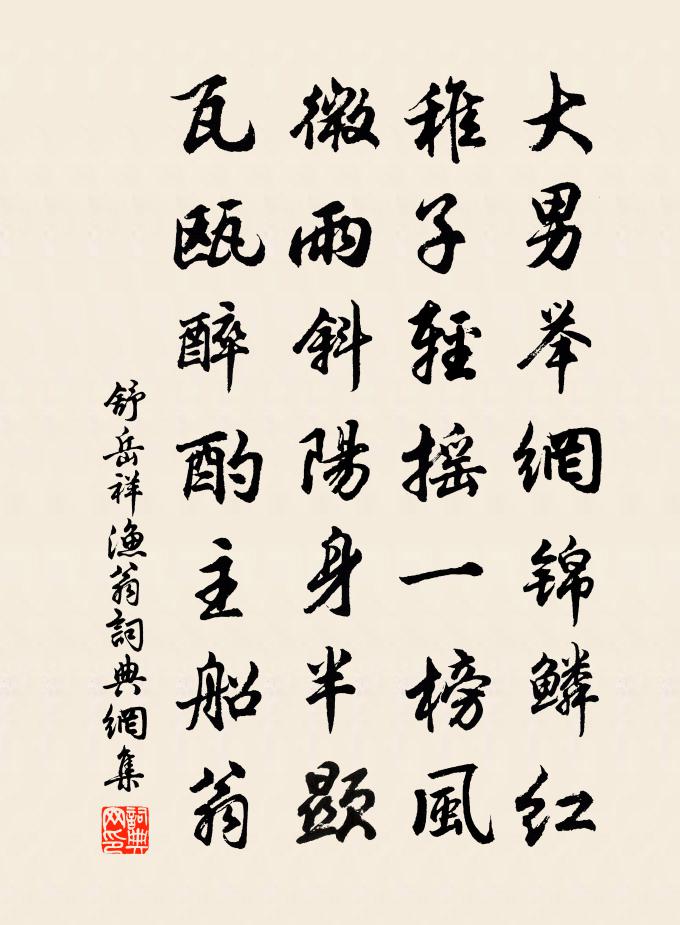 大男举網锦鳞红
稚子輕摇一榜風
微雨斜陽身半顕
瓦甌醉酌主船翁
舒岳祥漁翁詞典網集
詞典网印